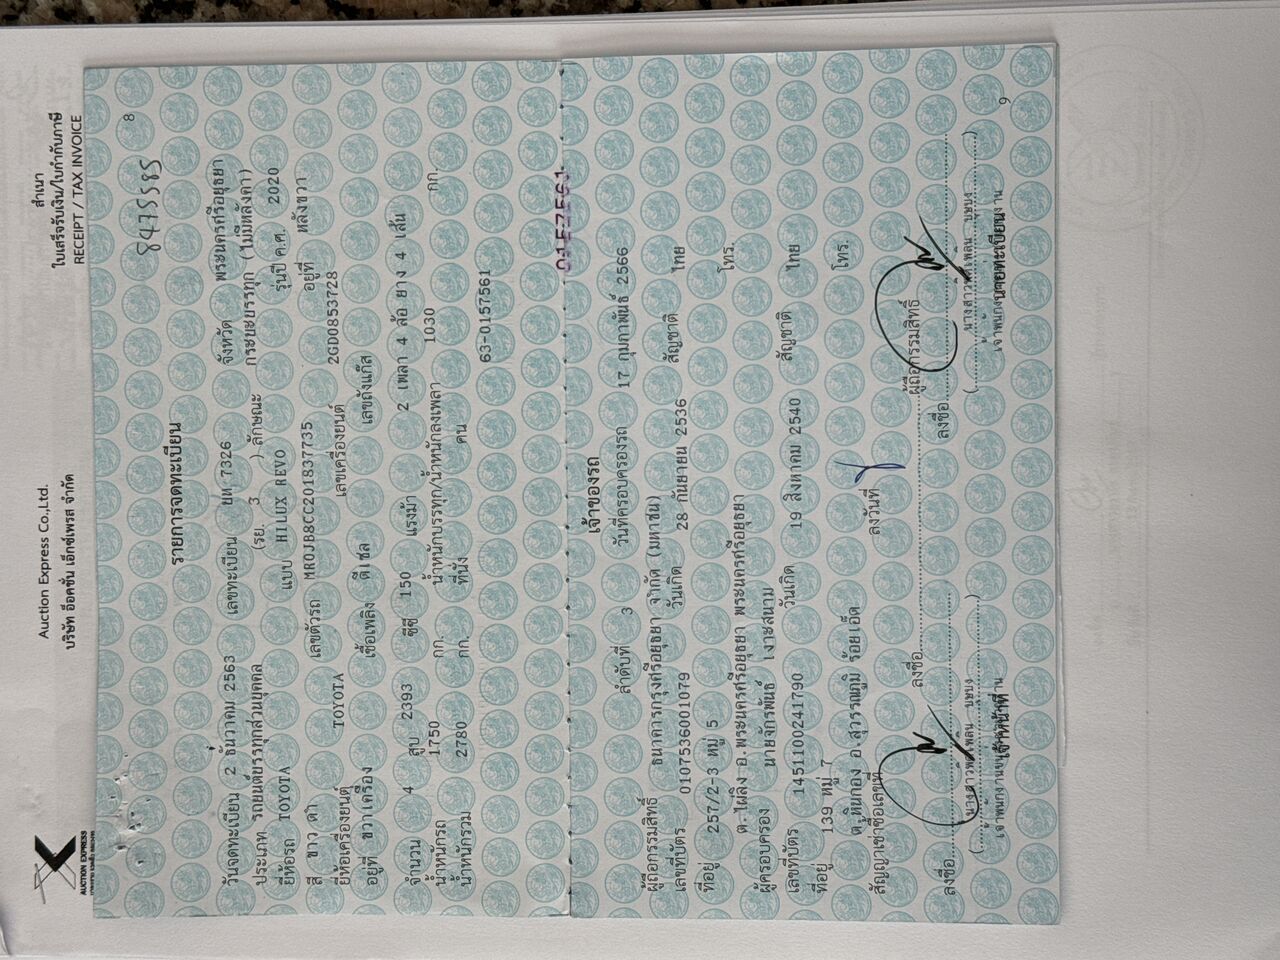 AUCTION EXPRESS
Auction Express Co.,Ltd.
บริษัท อ๊อคชั่น เอ็กซ์เพรส จำกัด
สำเนา
ใบเสร็จรับเงิน/ใบกำกับภาษี
RECEIPT / TAX INVOICE
8
8475585
รายการจดทะเบียน
วันจดทะเบียน 2 ธันวาคม 2563 เลขทะเบียน ยห 7326 จังหวัด พระนครศรีอยุธยา
ประเภท รถยนต์บรรทุกส่วนบุคคล (รย. 3 ) ลักษณะ กระบะบรรทุก (ไม่มีหลังคา)
ยี่ห้อรถ TOYOTA แบบ HILUX REVO รุ่นปี ค.ศ. 2020
สี ขาว ดำ เลขตัวรถ MR0JB8CC201837735 อยู่ที่ หลังขวา
ยี่ห้อเครื่องยนต์ TOYOTA เลขเครื่องยนต์ 2GD0853728
อยู่ที่ ขวาเครื่อง เชื้อเพลิง ดีเซล เลขถังแก๊ส
จำนวน 4 สูบ 2393 ซีซี 150 แรงม้า 2 เพลา 4 ล้อ ยาง 4 เส้น
น้ำหนักรถ 1750 กก. น้ำหนักบรรทุก/น้ำหนักลงเพลา 1030 กก.
น้ำหนักรวม 2780 กก. ที่นั่ง คน
63-0157561
0157561
เจ้าของรถ
ลำดับที่ 3 วันที่ครอบครองรถ 17 กุมภาพันธ์ 2566
ผู้ถือกรรมสิทธิ์ ธนาคารกรุงศรีอยุธยา จำกัด (มหาชน)
เลขที่บัตร 0107536001079 วันเกิด 28 กันยายน 2536 สัญชาติ ไทย
ที่อยู่ 257/2-3 หมู่ 5 โทร.
ต.ไผ่ลิง อ.พระนครศรีอยุธยา พระนครศรีอยุธยา
ผู้ครอบครอง นายจักรพันธ์ เงาะสนาม
เลขที่บัตร 1451100241790 วันเกิด 19 สิงหาคม 2540 สัญชาติ ไทย
ที่อยู่ 139 หมู่ 7 โทร.
ต.หินกอง อ.สุวรรณภูมิ ร้อยเอ็ด
สัญญาเช่าซื้อเลขที่ ลงวันที่
ลงชื่อ ผู้ถือกรรมสิทธิ์
ลงชื่อ ลงชื่อ
เจ้าหน้าที่ นายทะเบียน
9